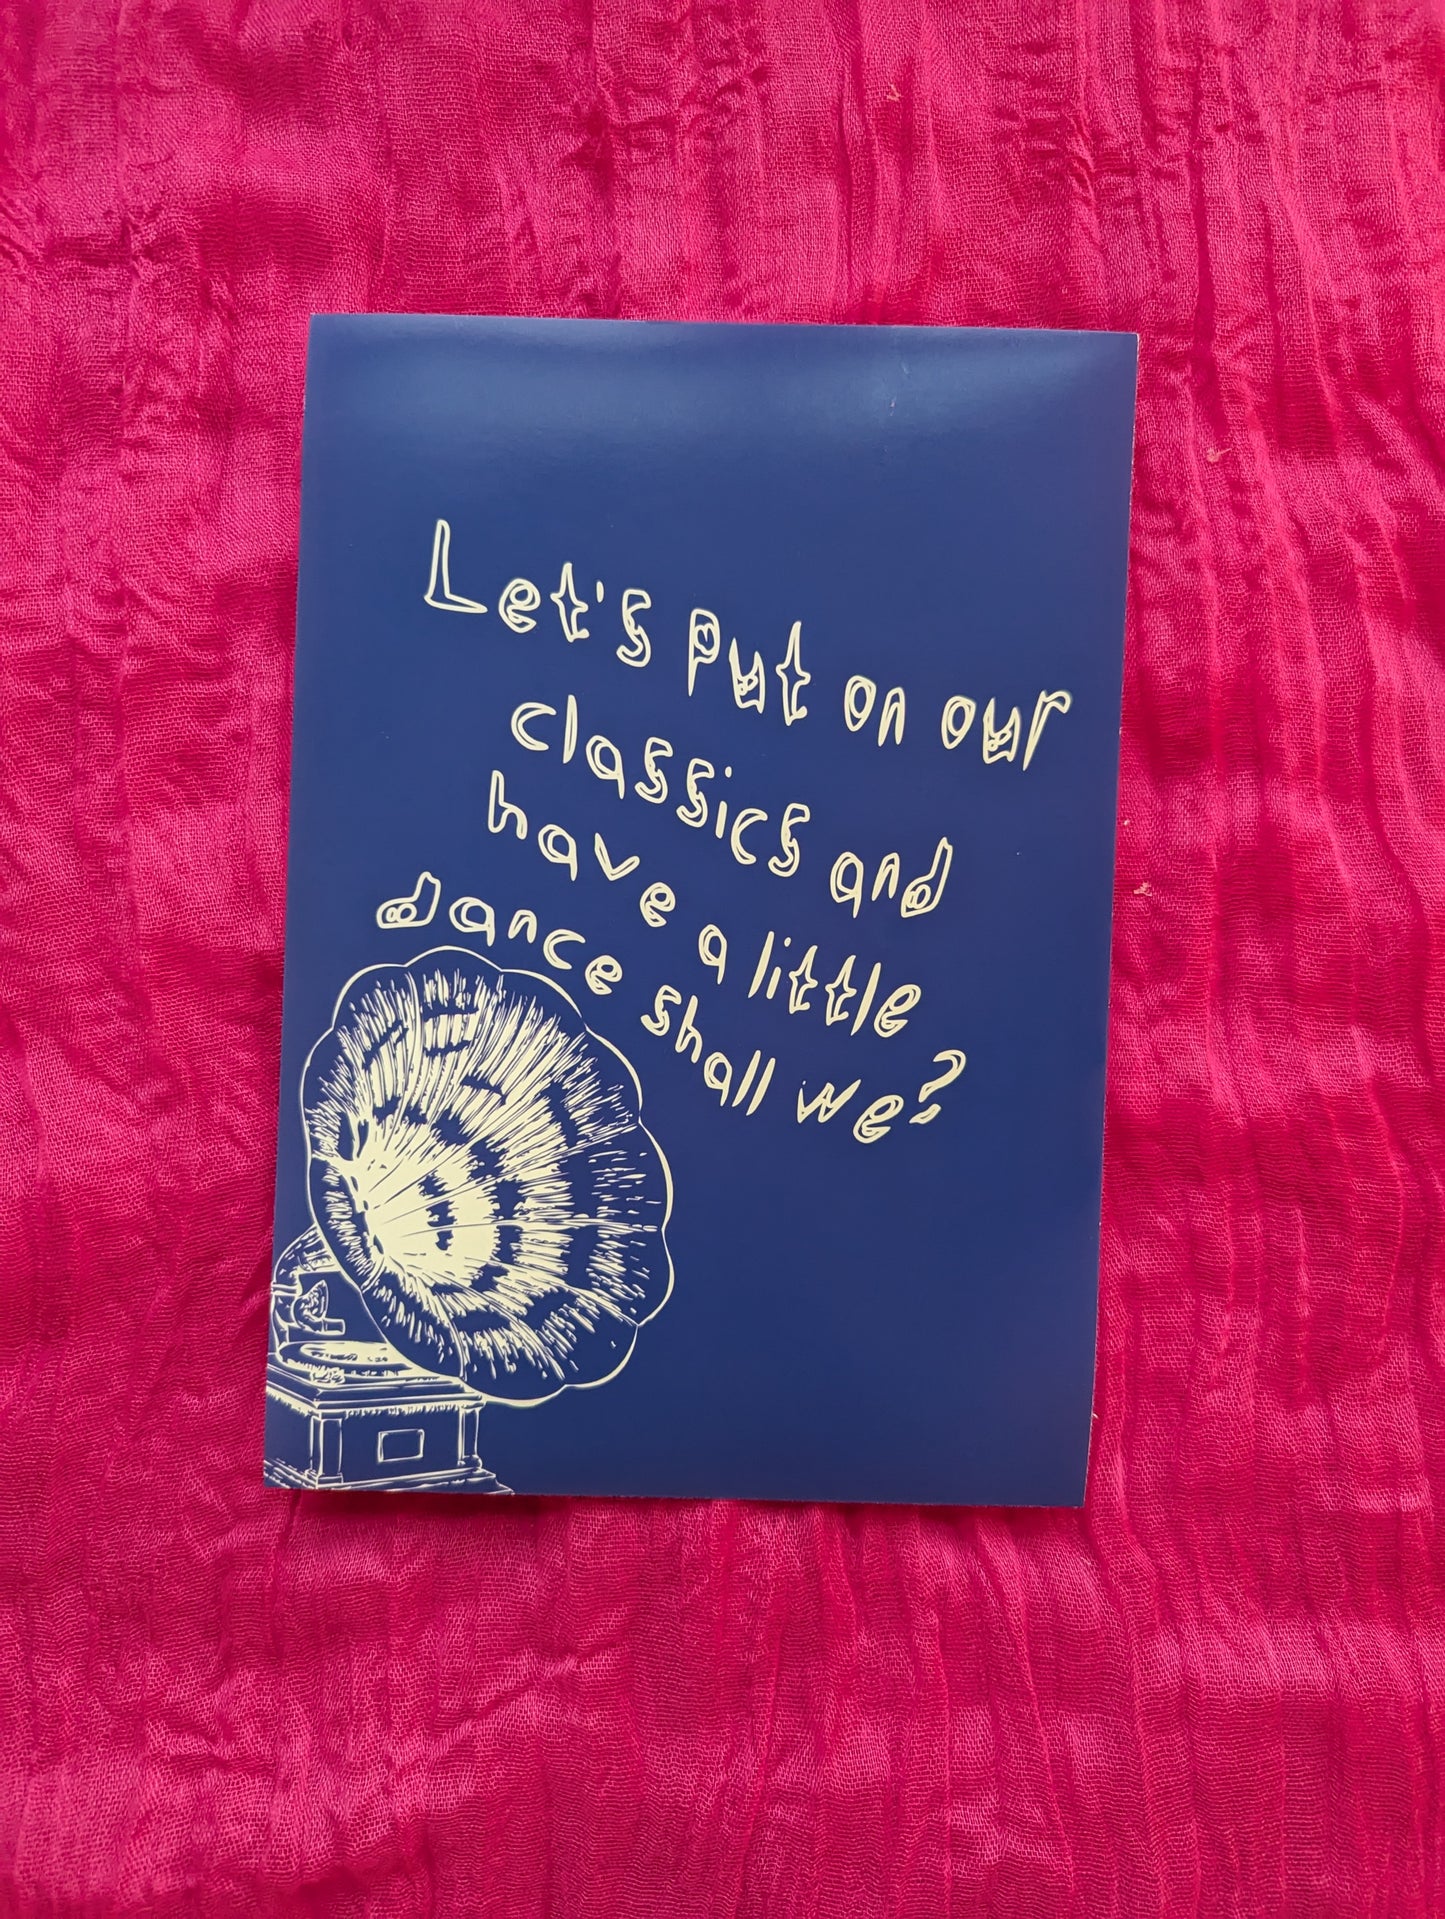 Let's put on our
classics and
have a little
dance shall we?